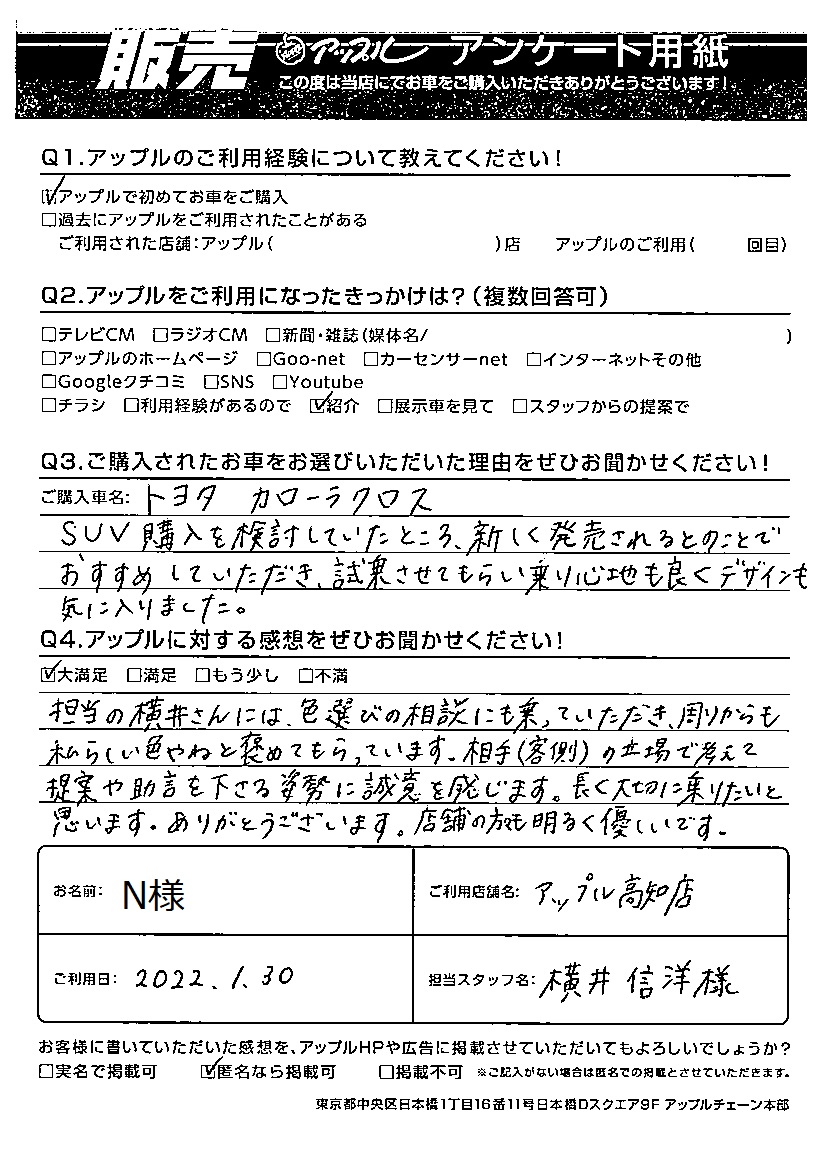 販売 アップル アンケート用紙
この度は当店にてお車をご購入いただきありがとうございます!
Q1.アップルのご利用経験について教えてください!
☑アップルで初めてお車をご購入
□過去にアップルをご利用されたことがある
ご利用された店舗:アップル( )店 アップルのご利用( 回目)
Q2.アップルをご利用になったきっかけは?(複数回答可)
□テレビCM □ラジオCM □新聞・雑誌(媒体名/ )
□アップルのホームページ □Goo-net □カーセンサーnet □インターネットその他
□Googleクチコミ □SNS □Youtube
□チラシ □利用経験があるので ☑紹介 □展示車を見て □スタッフからの提案で
Q3.ご購入されたお車をお選びいただいた理由をぜひお聞かせください!
ご購入車名: トヨタ カローラクロス
SUV購入を検討していたところ、新しく発売されるとのことで
おすすめしていただき、試乗させてもらい乗り心地も良くデザインも
気に入りました。
Q4.アップルに対する感想をぜひお聞かせください!
☑大満足 □満足 □もう少し □不満
担当の横井さんには、色選びの相談にも乗っていただき、周りからも
私らしい色やねと褒めてもらっています。相手(客側)の立場で考えて
提案や助言を下さる姿勢に誠意を感じます。長く大切に乗りたいと
思います。ありがとうございます。店舗の方も明るく優しいです。
お名前: N様 ご利用店舗名: アップル高知店
ご利用日: 2022.1.30 担当スタッフ名: 横井 信洋様
お客様に書いていただいた感想を、アップルHPや広告に掲載させていただいてもよろしいでしょうか?
□実名で掲載可 ☑匿名なら掲載可 □掲載不可 ※ご記入がない場合は匿名での掲載とさせていただきます。
東京都中央区日本橋1丁目16番11号日本橋Dスクエア9F アップルチェーン本部